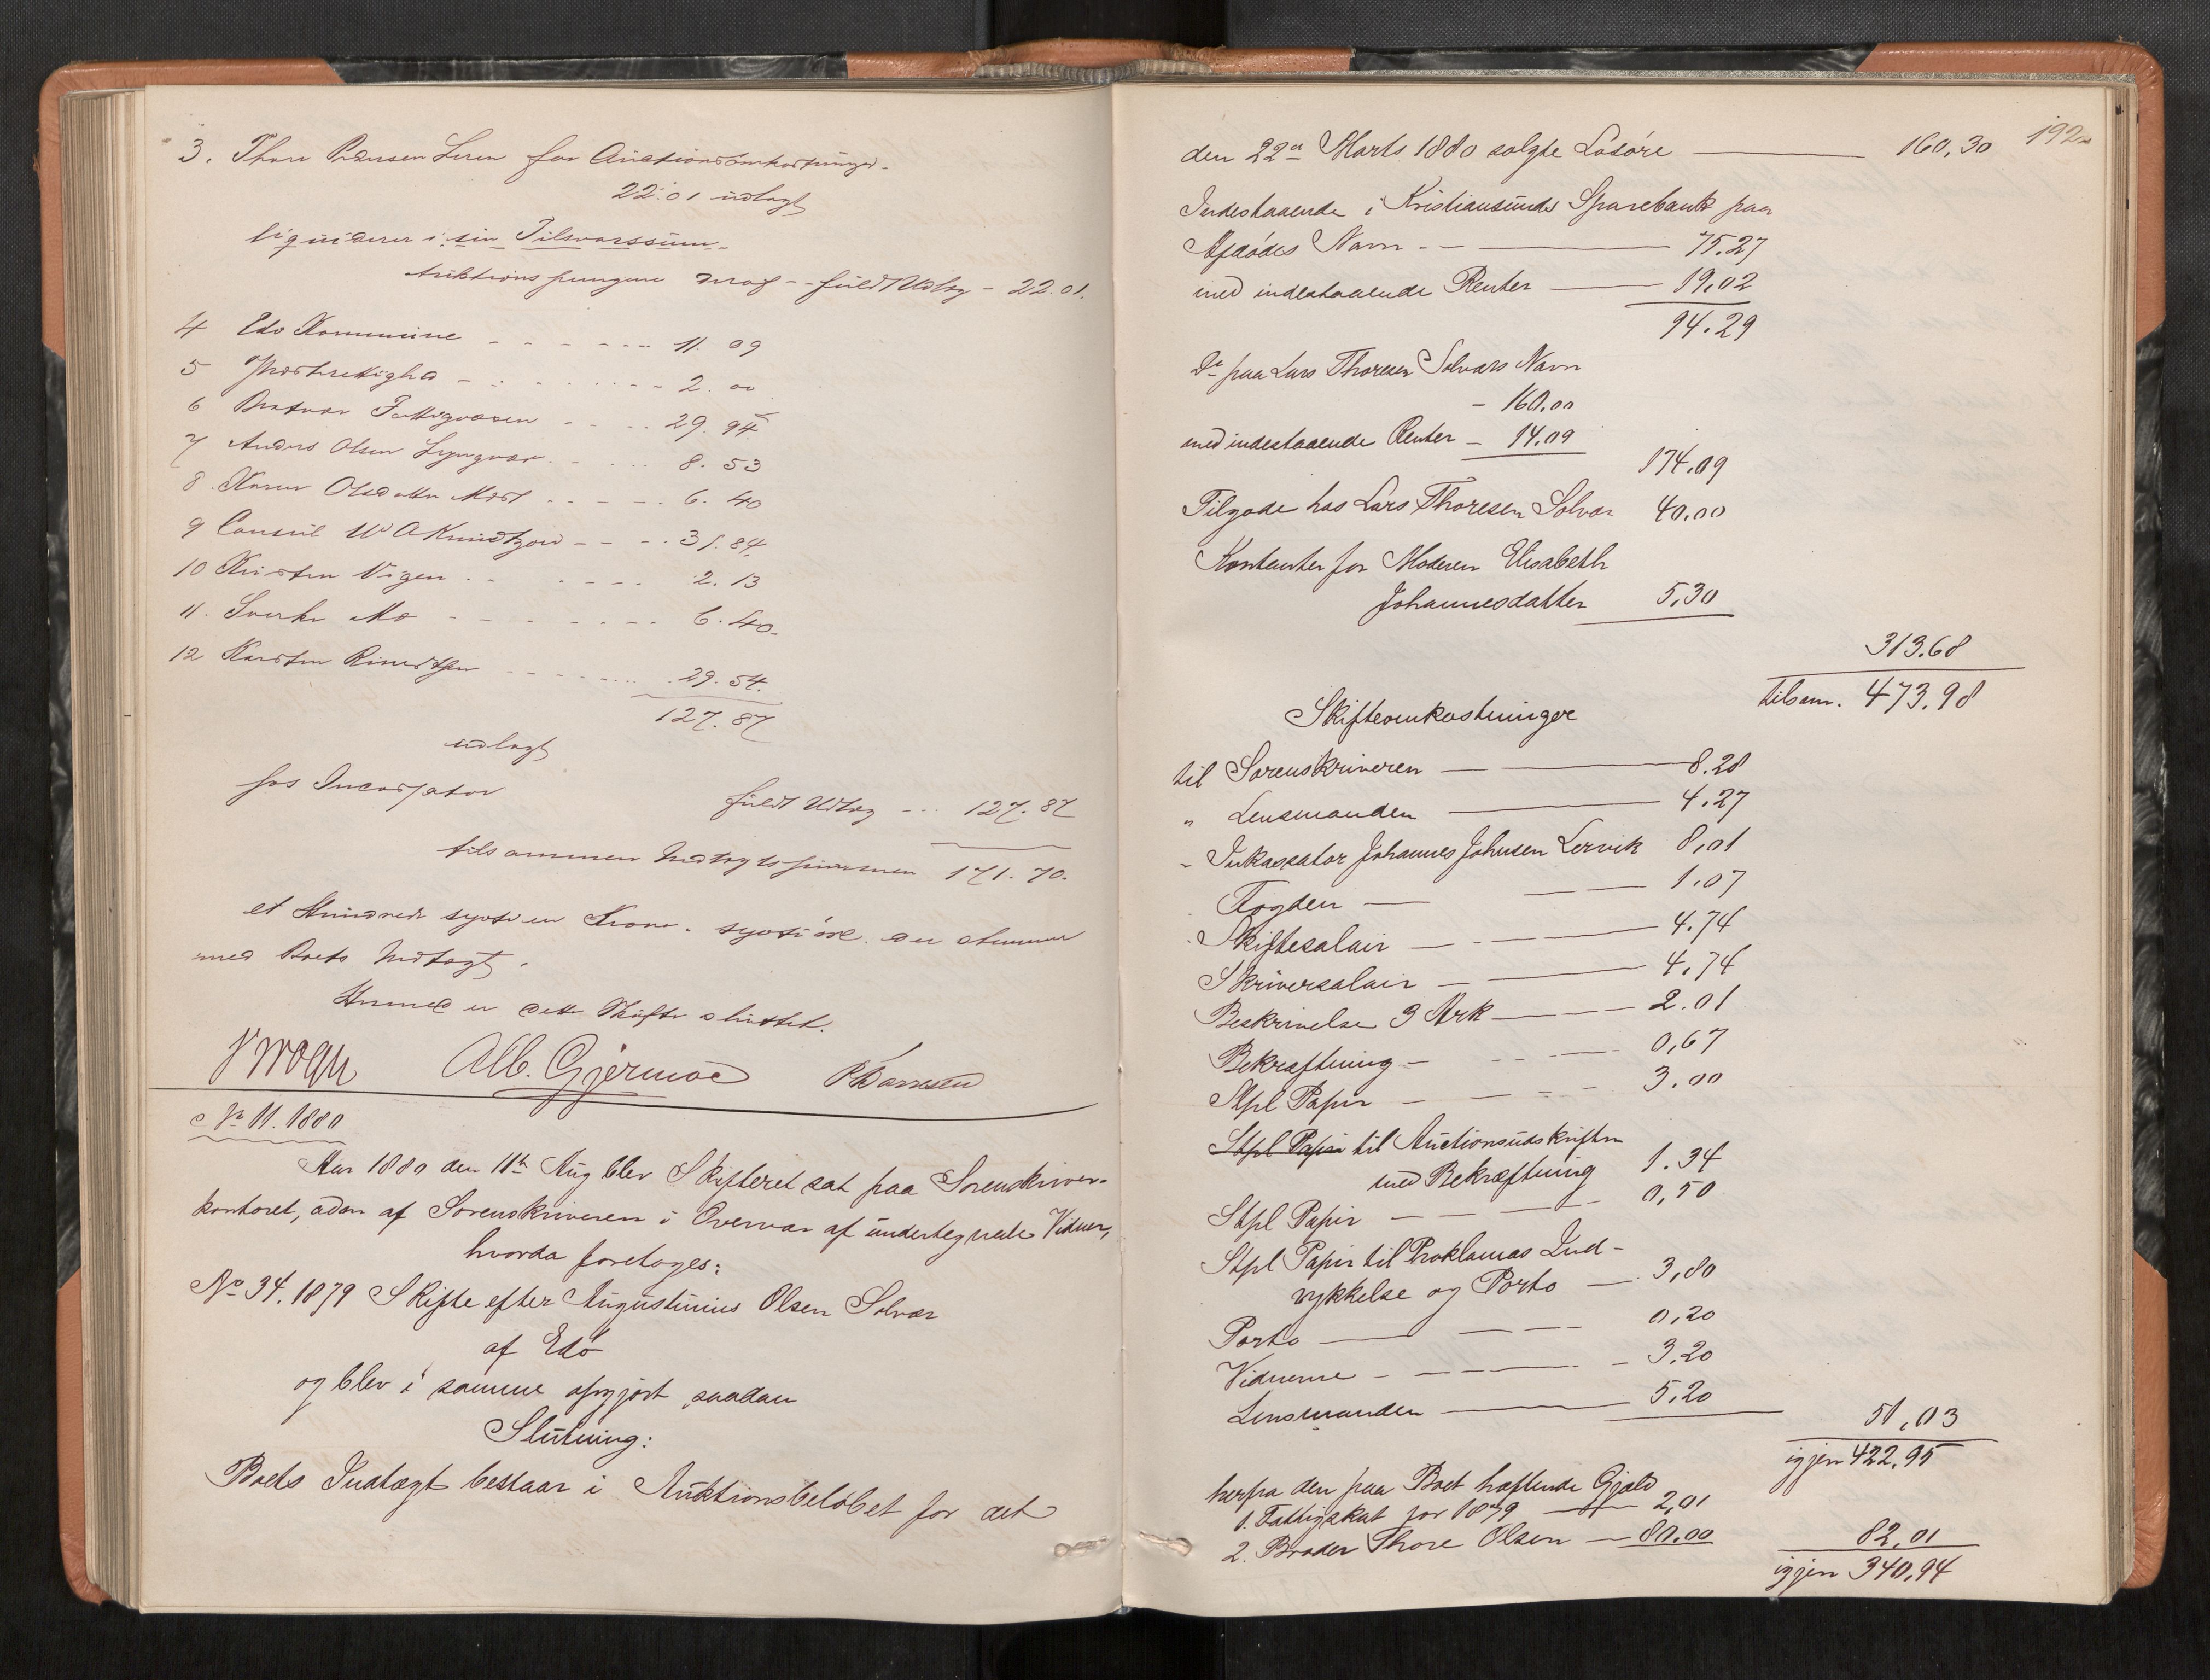 3. Thore Pedersen Leren for Auctionsomkostninger
22.01 udlagt
liquiderer i sin Tilsvarssum
Auktionspengene fuldt Udlæg - 22.01.
4 Edø Kommune 11.09
5 2.00
6 Bratvær Fattigvæsen 29.94
7 Anders Olsen Lyngvær 8.53
8. Karen Olsdatter 6.40
9 Consul W A Knudtzon 31.84
10 Kirsten Vigen 2.13
11. Sverke Mo 6.40
12 Karsten Rinertsen 29.54.
127.87
udlagt
hos Incassator fuldt Udlæg 127.87
tilsammen Indtægtssummen 171.70.
et Hundrede sytti en Krone sytti øre der stemmer
med Boets Indtægt.
Hermed er dette Skifte sluttet.
Krogh Alb. Gjermoe
No 11. 1880
Aar 1880 den 11te Aug blev Skifteret sat paa Sorenskriver-
kontoret, adm af Sorenskriveren i Overvær af undertegnede Vidner,
hvorda foretoges:
No 34. 1879 Skifte efter Augustinius Olsen Solvær
af Edø
og blev i samme afgjort saadan
Slutning:
Boets Indtægt bestaar i Auktionsbeløbet for det
192
den 22de Marts 1880 solgte Løsøre 160,30
Indestaaende i Kristiansunds Sparebank paa
Afdødes Navn 75.27
med indestaaende Renter 19,02
94.29
Do paa Lars Thoresen Solværs Navn
160.00
med indestaaende Renter 14.09
174.09
Tilgode hos Lars Thoresen Solvær 40,00
Kontanter for Moderen Elisabeth
Johannesdatter 5,30
313.68
tilsam. 473,98
Skifteomkostninger
til Sorenskriveren 8.28
" Lensmanden 4.27
" Inkassator Johannes Johnsen Lervik 8,01
Fogden 1.07
Skiftesalair 4.74
Skriversalair 4.74
Beskrivelse 3 Ark 2.01
Bekræftning 0,67
Stpl Papir 3.00
Stpl Papir til Auctionsudskriften
med Bekræftning 1.34
Stpl Papir 0,50
Stpl Papir til Proklamas Ind-
rykkelse og Porto 3,80
Porto 0,20
Vidnerne 3,20
Lensmanden 5,20
51,03
igjen 422,95
herfra den paa Boet hæftende Gjæld
1. Fattigskat for 1879 2,01
2. Broder Thore Olsen 80.00
82,01
igjen 340,94